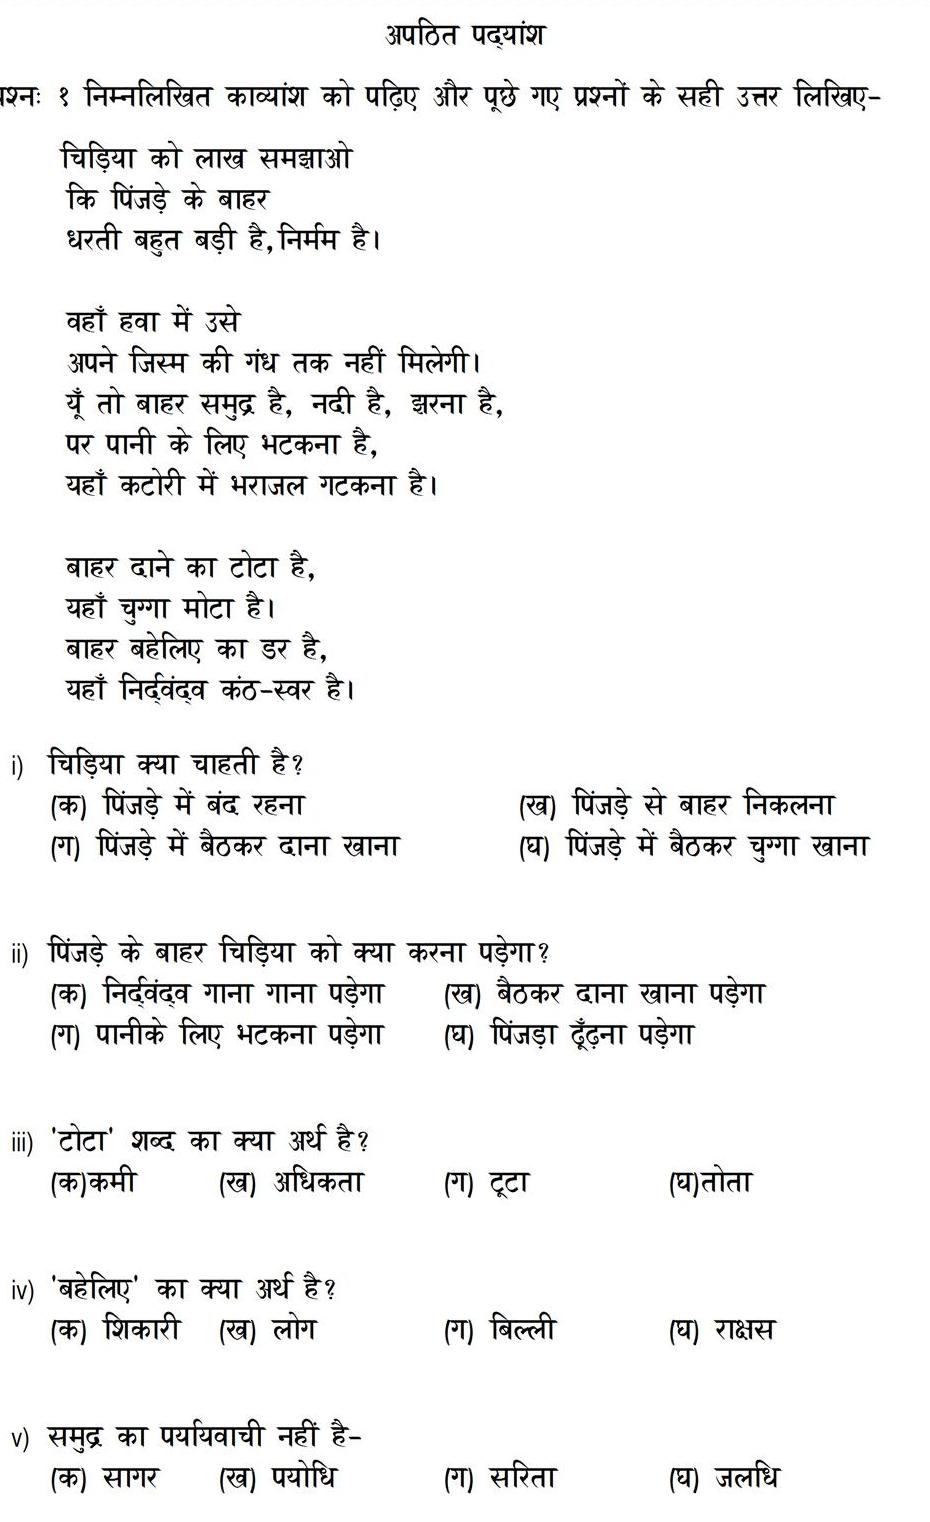 अपठित पद्यांश
प्रश्नः १ निम्नलिखित काव्यांश को पढ़िए और पूछे गए प्रश्नों के सही उत्तर लिखिए-
चिड़िया को लाख समझाओ
कि पिंजड़े के बाहर
धरती बहुत बड़ी है,निर्मम है।
वहाँ हवा में उसे
अपने जिस्म की गंध तक नहीं मिलेगी।
यूँ तो बाहर समुद्र है, नदी है, झरना है,
पर पानी के लिए भटकना है,
यहाँ कटोरी में भराजल गटकना है।
बाहर दाने का टोटा है,
यहाँ चुग्गा मोटा है।
बाहर बहेलिए का डर है,
यहाँ निर्द्वंद्व कंठ-स्वर है।
i) चिड़िया क्या चाहती है?
(क) पिंजड़े में बंद रहना (ख) पिंजड़े से बाहर निकलना
(ग) पिंजड़े में बैठकर दाना खाना (घ) पिंजड़े में बैठकर चुग्गा खाना
ii) पिंजड़े के बाहर चिड़िया को क्या करना पड़ेगा?
(क) निर्द्वंद्व गाना गाना पड़ेगा (ख) बैठकर दाना खाना पड़ेगा
(ग) पानीके लिए भटकना पड़ेगा (घ) पिंजड़ा ढूँढ़ना पड़ेगा
iii) 'टोटा' शब्द का क्या अर्थ है?
(क)कमी (ख) अधिकता (ग) टूटा (घ)तोता
iv) 'बहेलिए' का क्या अर्थ है?
(क) शिकारी (ख) लोग (ग) बिल्ली (घ) राक्षस
v) समुद्र का पर्यायवाची नहीं है-
(क) सागर (ख) पयोधि (ग) सरिता (घ) जलधि